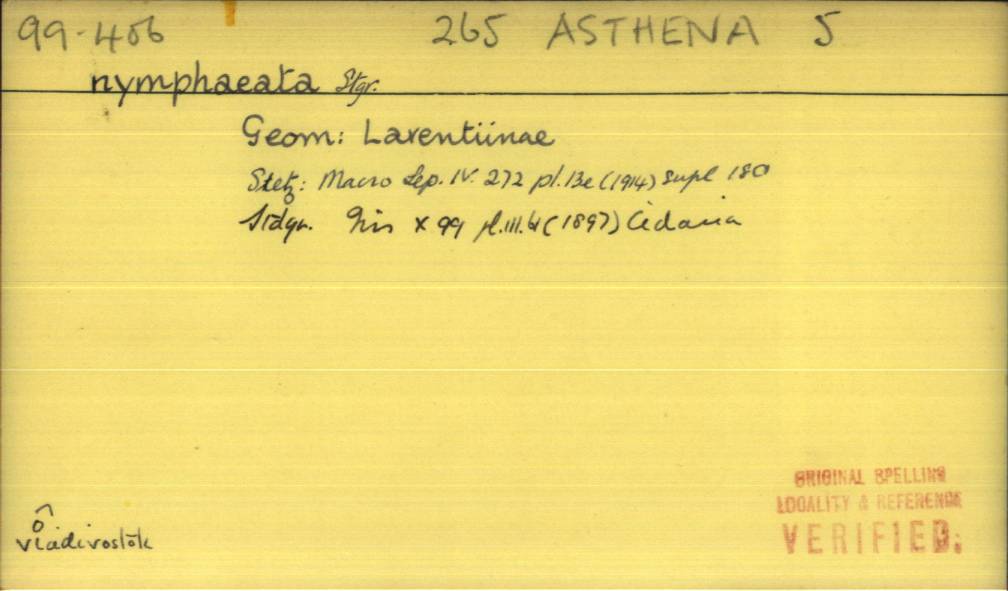 99-406 265 ASTHENA 5
nymphaeata Stgr.
Geom: Larentiinae
Seitz: Macro Lep. IV. 272 pl.13e (1914) supl 180
Stdgr. Iris X 99 pl.III. (1897) Cidaria
ORIGINAL SPELLING
LOCALITY & REFERENCE
VERIFIED.
Vladivostok